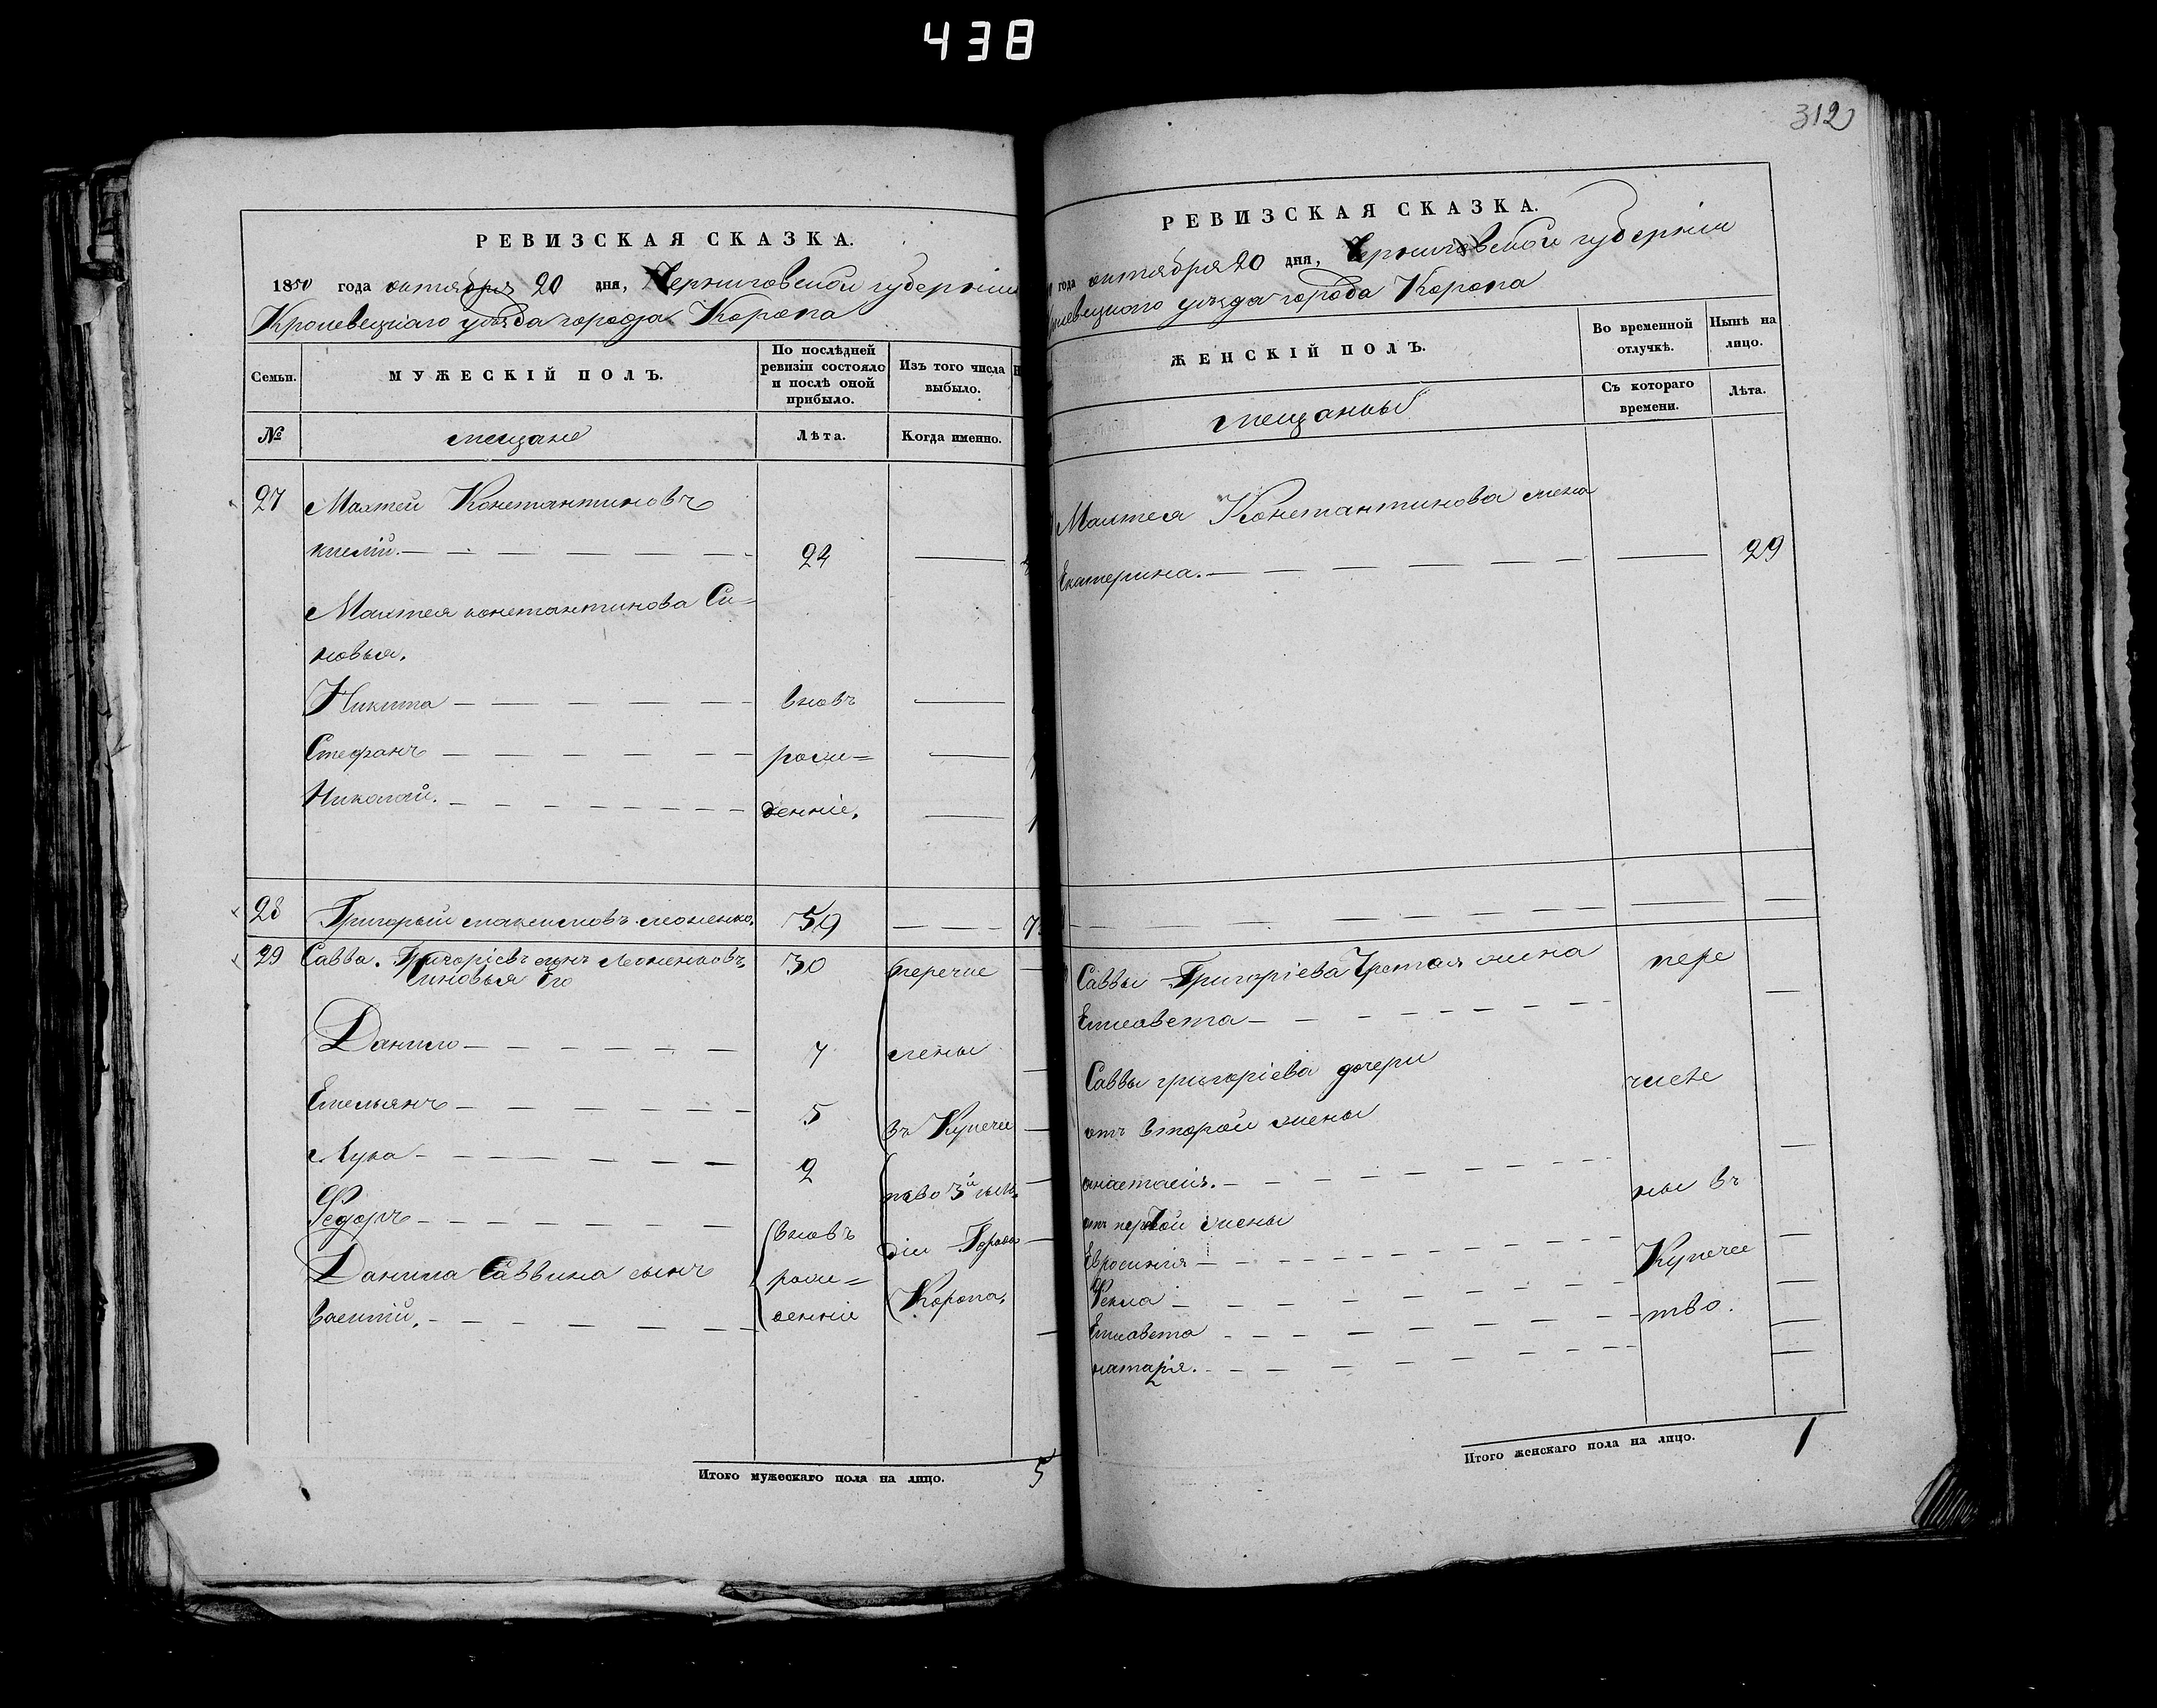 438
312
РЕВИЗСКАЯ СКАЗКА.
1850 года октября 20 дня, Черниговской губерніи
Кролевецкаго уѣзда города Коропа
Семьи. МУЖЕСКІЙ ПОЛЪ. По послѣдней ревизіи состояло и послѣ оной прибыло. Изъ того числа выбыло.
№ мещане Лѣта. Когда именно.
27 Матѳей Константиновъ
24
Матѳея Константинова Си=
новья.
Никита вновь
Стефанъ рож=
Николай. денніе.
28 Григорый Максимовъ 59
29 Савва. Григоріевъ сынъ 30 перечис
Синовья Его
Данило 7 лены
Емельянъ 5 въ Купечес
Лука 2 тво 3й гиль
Федоръ вновь діи Города
Данила Саввина сынъ рож= Коропа.
денніе
Итого мужескаго пола на лицо. 5
РЕВИЗСКАЯ СКАЗКА.
года октября 20 дня, Черниговской губерніи
уѣзда города Коропа
ЖЕНСКІЙ ПОЛЪ. Во временной отлучкѣ. Нынѣ на лицо.
мещанкы Съ котораго времени. Лѣта.
Матѳея Константинова жена
Екатерина. 29
Саввы Григоріева Третая жена пере
Елисавета
Саввы григоріева дочери числе
отъ второй жены
анастасія. ны въ
отъ первой жены
Евросинія Купечес
Фекла
Елисавета тво.
Итого женскаго пола на лицо. 1